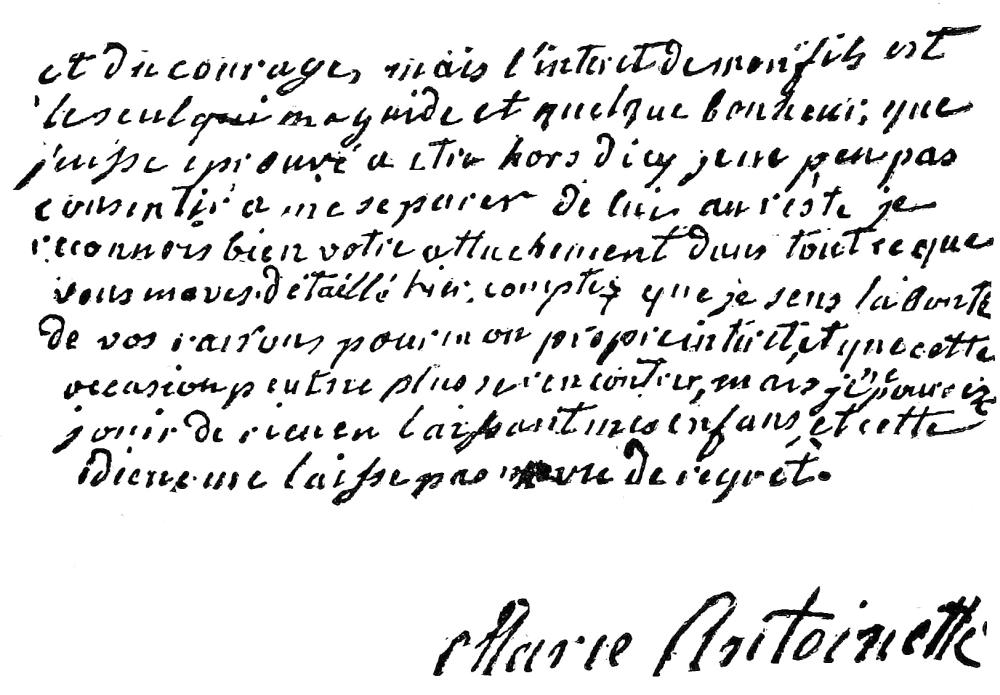 et du courage, mais l'interet de mon fils est
le seul qui me guide et quelque bonheur, que
j'eusse eprouvé a etre hors d'icy je ne peu pas
consentir a me separer de lui. au reste je
reconnois bien votre attachement dans tout ce que
vous maves détaillé hier. comptez que je sens la bonté
de vos raisons pour mon propre interet, et que cette
occasion peut ne plus se rencontrer, mais je ne pourois
jouir de rien en laissant mes enfans, et cette
idiene me laisse pas de regret.
Marie Antoinette